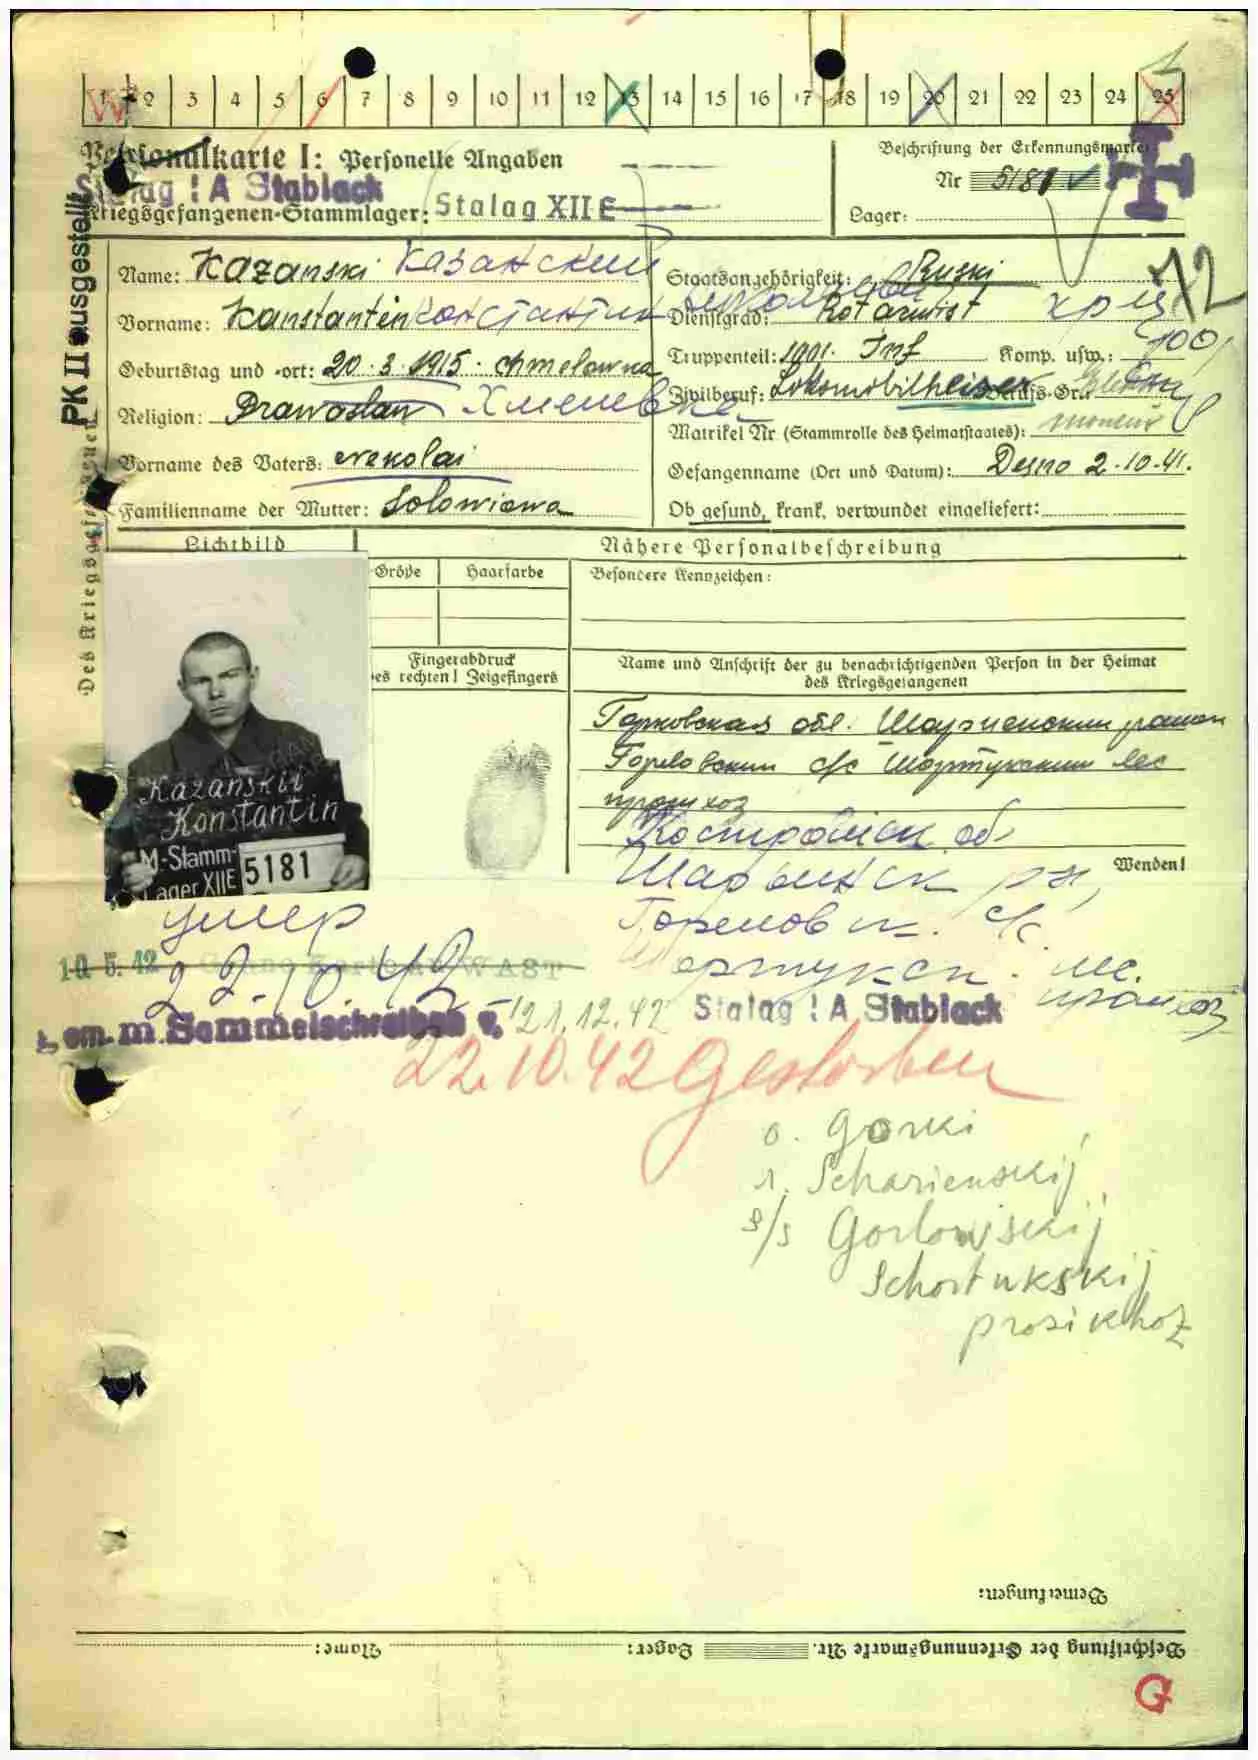 1 2 3 4 5 6 7 8 9 10 11 12 13 14 15 16 17 18 19 20 21 22 23 24 25
W
Personalkarte I: Personelle Angaben
Beschriftung der Erkennungsmarke
Stalag I A Stablack
Nr 5181
Kriegsgefangenen-Stammlager: Stalag XII E
Lager:
PK II ausgestellt
Des Kriegsgefangenen
Name: Kazanski Казанский
Staatsangehörigkeit: Ruski
12
Vorname: Kanstantin Константин
Dienstgrad: Rotarmist
Geburtstag und -ort: 20.3.1915. Chmelowna
Truppenteil: 1001. Inf Komp. usw.:
Religion: Prawoslaw Хмелевка
Zivilberuf: Lokomobilheiser Berufs-Gr.:
Matrikel Nr (Stammrolle des Heimatstaates):
Vorname des Vaters: Nekolai
Gefangenname (Ort und Datum): Desno 2.10.41.
Familienname der Mutter: Solowiowa
Ob gesund, krank, verwundet eingeliefert:
Lichtbild
Nähere Personalbeschreibung
Größe Haarfarbe Besondere Kennzeichen:
Fingerabdruck
des rechten! Zeigefingers
Name und Anschrift der zu benachrichtigenden Person in der Heimat
des Kriegsgefangenen
Горковская обл. Шарьенский район
Гореловский с/с Шортукский лес
промхоз
Kazanskii
Konstantin
M-Stamm-
Lager XII E 5181
Костромск об
Wenden!
Шарьинск р-н,
умер
Гореловск. с/с.
10.5.42
22.10.42
Шортукск. лес.
промхоз
gem. m. Sammelschreiben v. 21.12.42
Stalag I A Stablack
22.10.42 Gestorben
o. Gorki
r. Scharienskij
s/s Gorlowskij
Schortukskij
prosikhoz
Bemerkungen:
Beschriftung der Erkennungsmarke Nr. Lager: Name:
G